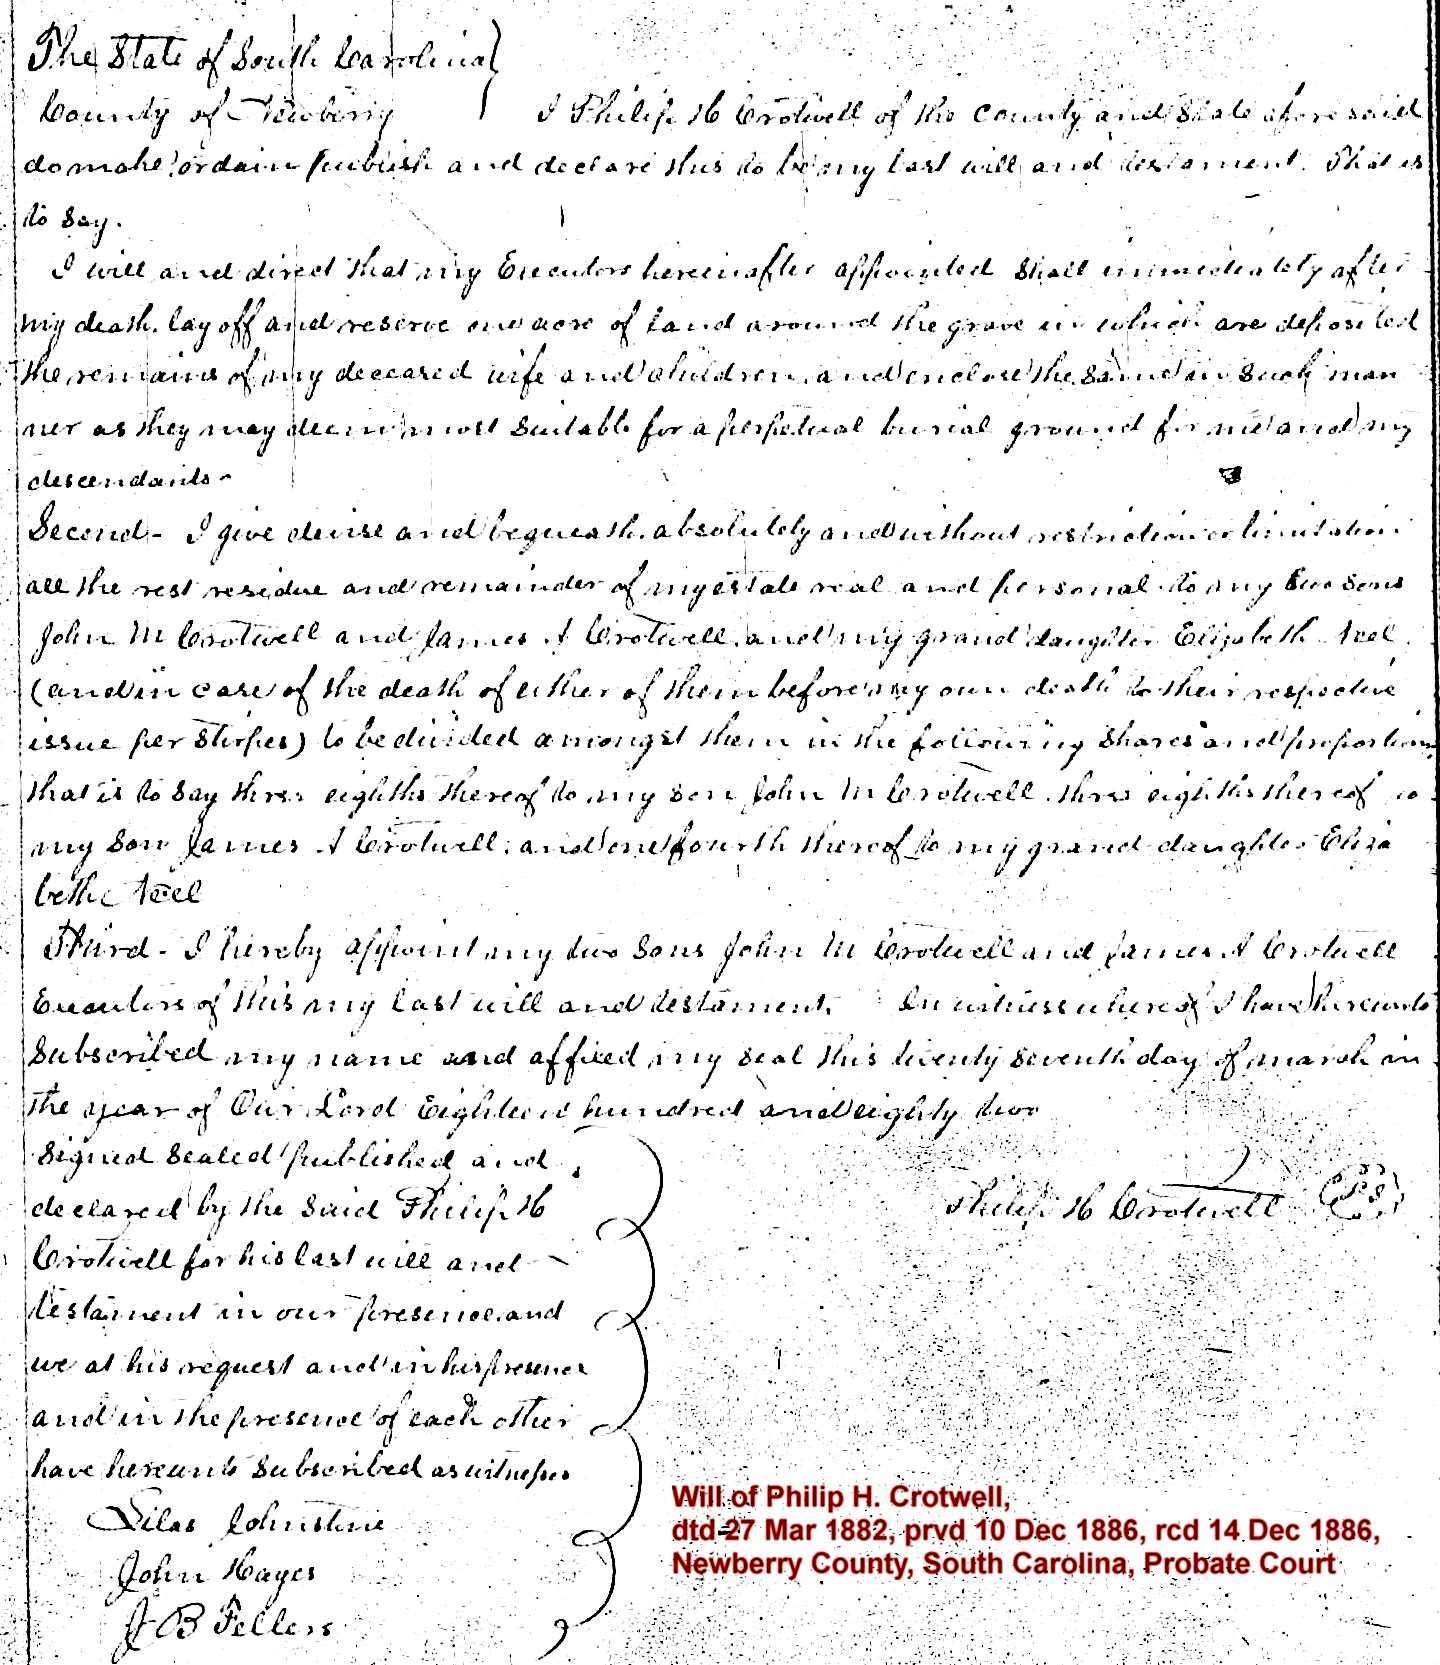 The State of South Carolina
County of Newberry I Philip H Crotwell of the County and State aforesaid
do make ordain publish and declare this to be my last will and testament. That is
to say.
I will and direct that my Executors hereinafter appointed shall immediately after
my death, lay off and reserve one acre of land around the grave in which are deposited
the remains of my deceased wife and children, and enclose the same in such man
ner as they may deem most suitable for a perpetual burial ground for me and my
descendants-
Second- I give devise and bequeath, absolutely and without restriction or limitation
all the rest residue and remainder of my estate real and personal to my two sons
John M Crotwell and James A Crotwell, and my grand daughter Elizabeth
(and in case of the death of either of them before my own death to their respective
issue per stirpes) to be divided amongst them in the following shares and proportions
that is to say three eighths thereof to my son John M Crotwell, three eighths thereof to
my son James A Crotwell, and one fourth thereof to my grand daughter Eliza
bethe
Third- I hereby appoint my two sons John M Crotwell and James A Crotwell
Executors of this my last will and testament. In witness whereof I have hereunto
Subscribed my name and affixed my seal this twenty seventh day of march in
the year of Our Lord Eighteen hundred and eighty two
Signed sealed published and
declared by the said Philip H
Philip H Crotwell LS
Crotwell for his last will and
testament in our presence, and
we at his request and in his presence
and in the presence of each other
have hereunto subscribed as witnesses
Silas Johnstone
John Hayes
J B Fellers
Will of Philip H. Crotwell,
dtd 27 Mar 1882, prvd 10 Dec 1886, rcd 14 Dec 1886,
Newberry County, South Carolina, Probate Court